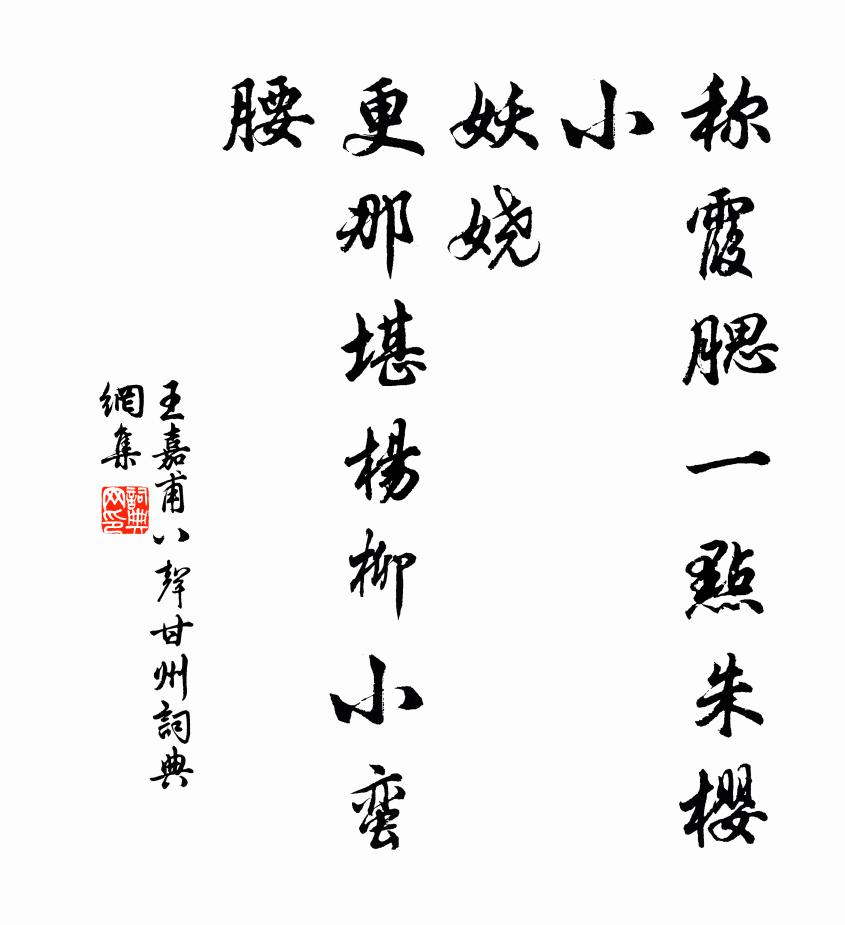 称霞腮一點朱櫻
小
妖娆
更那堪楊柳小蛮
腰
王嘉甫八聲甘州詞典
網集
詞典
网印